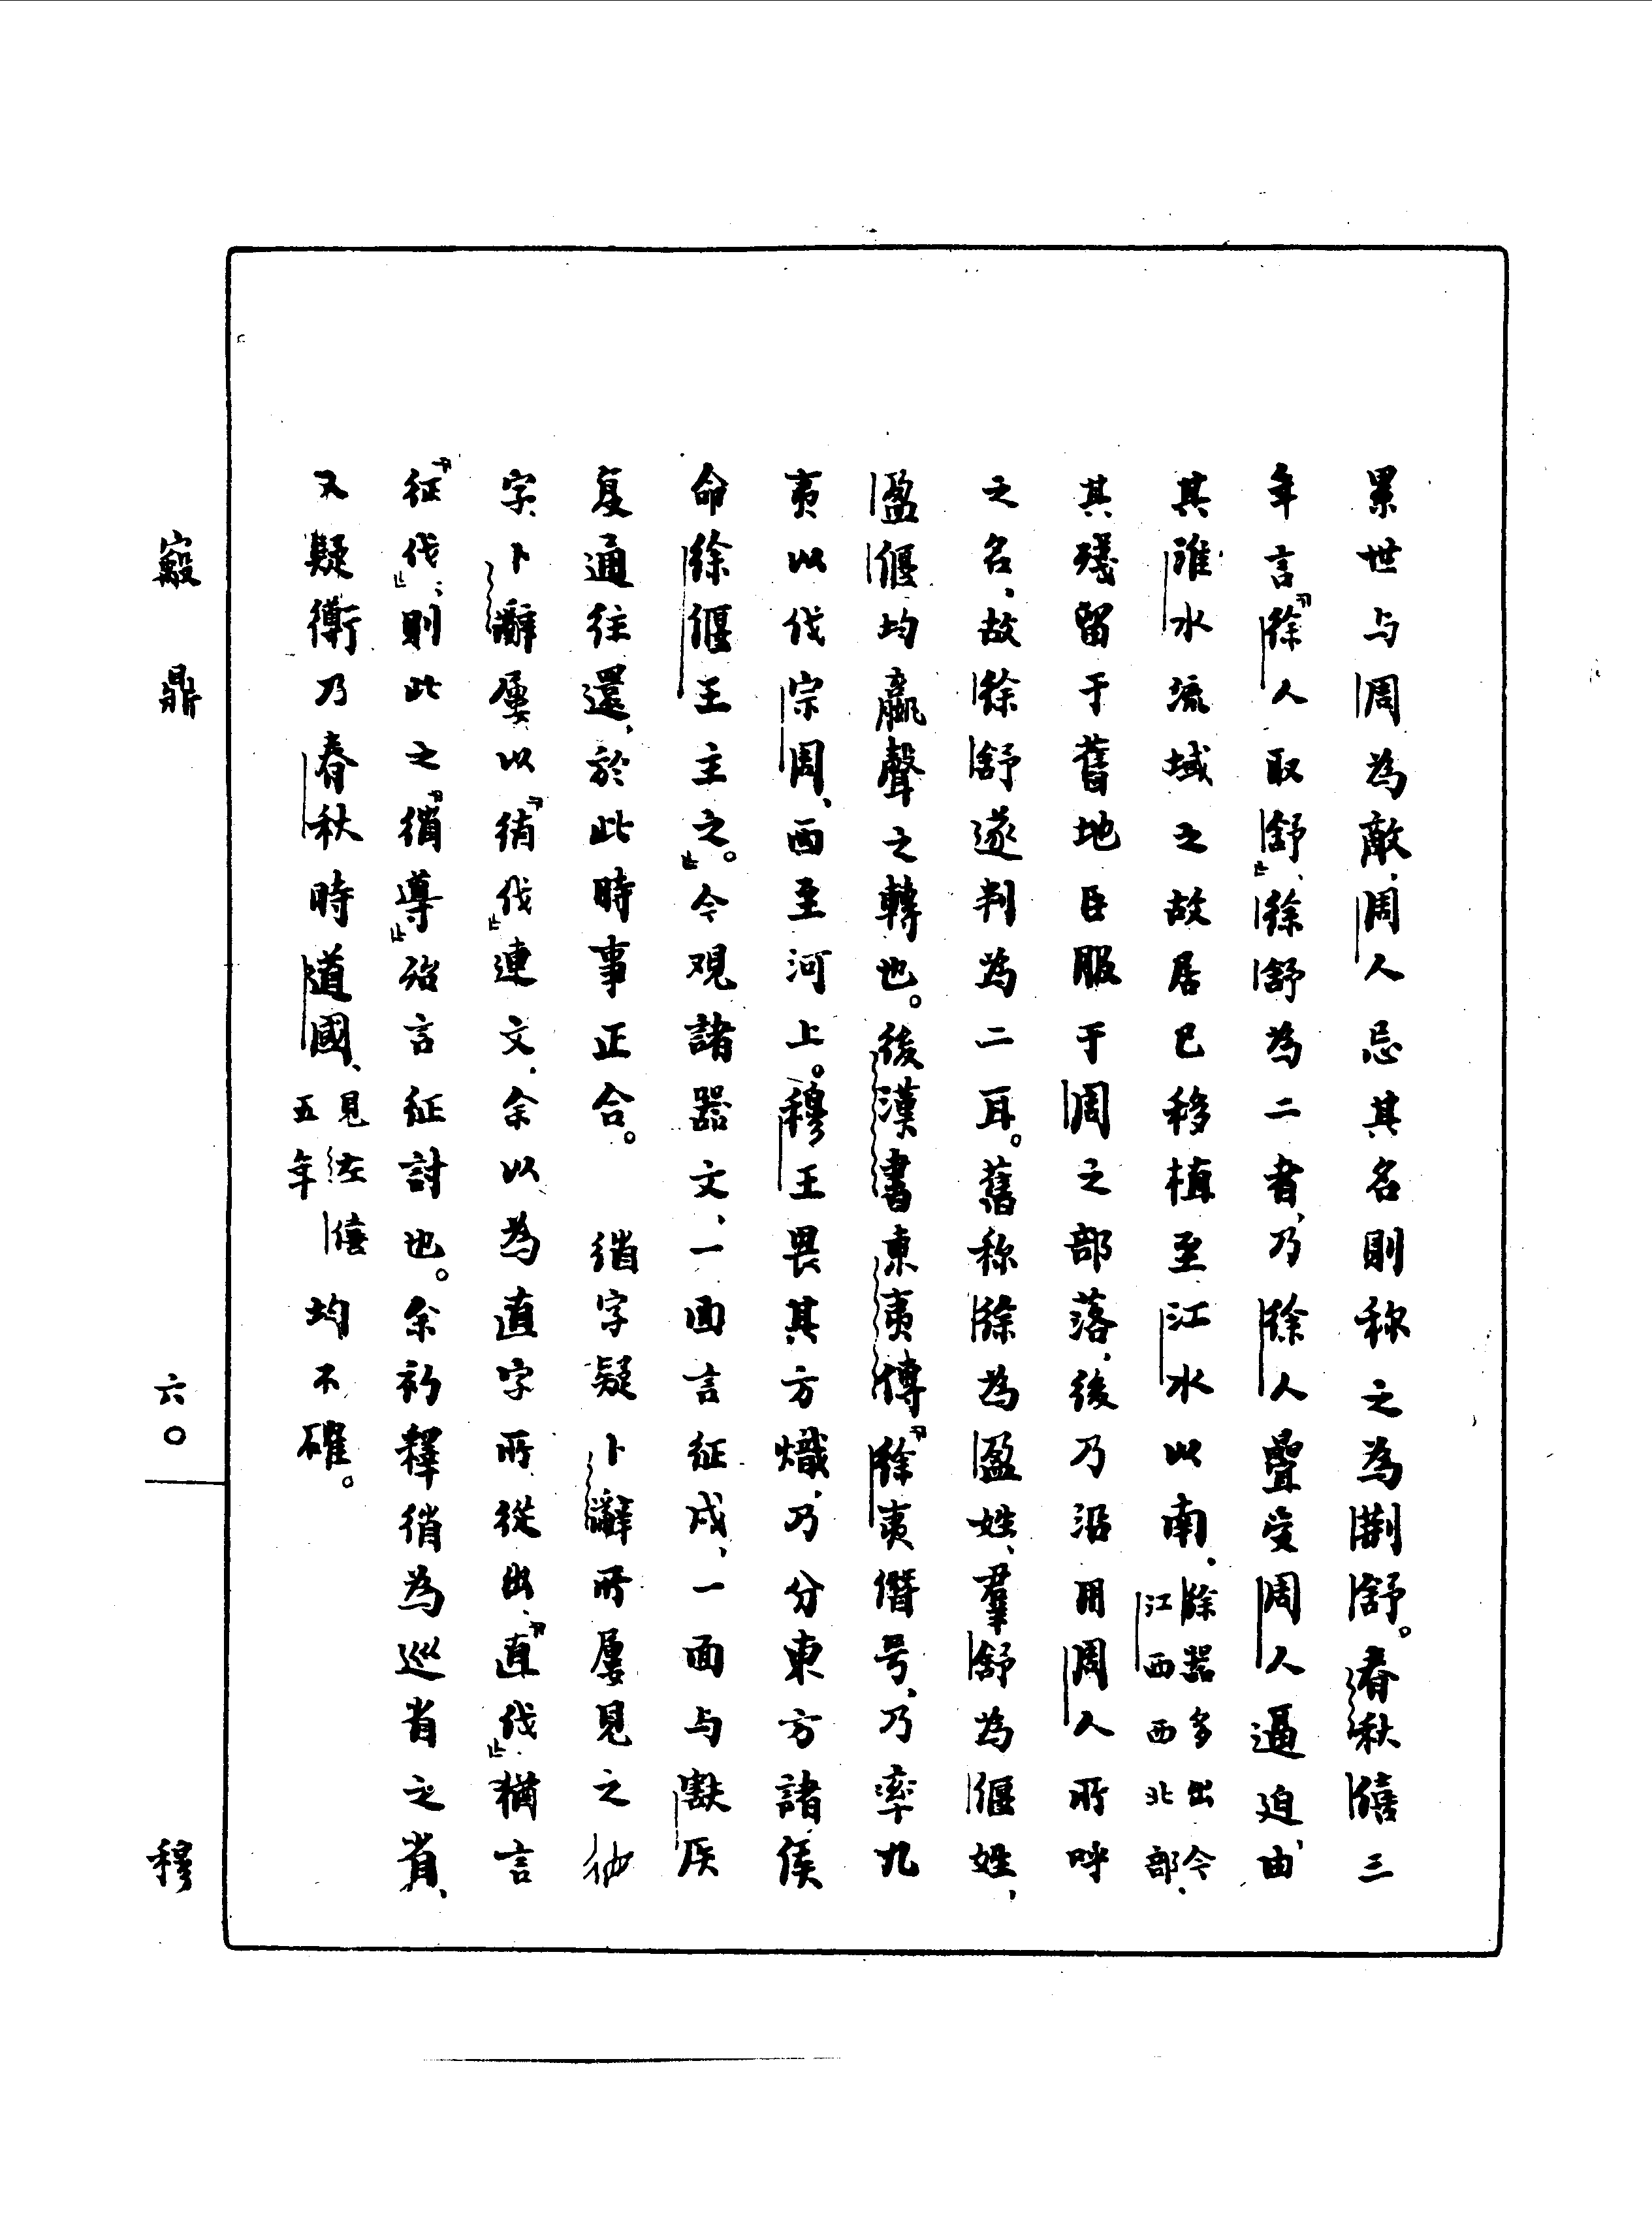 累世与周為敵，周人忌其名則称之為荆舒。春秋僖三
年言『徐人取舒』，徐舒為二者，乃徐人疊受周人逼迫，由
其淮水流域之故居已移植至江水以南。徐器多出今江西西北部。
其殘留于舊地臣服于周之部落，後乃沿用周人所呼
之名，故徐舒遂判為二耳。舊称徐為盈姓，羣舒為偃姓，
盈偃均嬴聲之轉也。後漢書東夷傳『徐夷僭号，乃率九
夷以伐宗周，西至河上。穆王畏其方熾，乃分東方諸侯
命徐偃王主之。』今观諸器文，一面言征戍，一面与㝬厌
复通往還，於此時事正合。　𢓊字疑卜辭所屢見之
字，卜辭屢以『𢓊伐』連文，余以為直字所從出，『直伐』猶言
『征伐』；則此之『𢓊導』殆言征討也。余初釋𢓊為巡省之省，
又疑衜乃春秋時道國，見左僖五年均不確。
鼎
六〇
穆